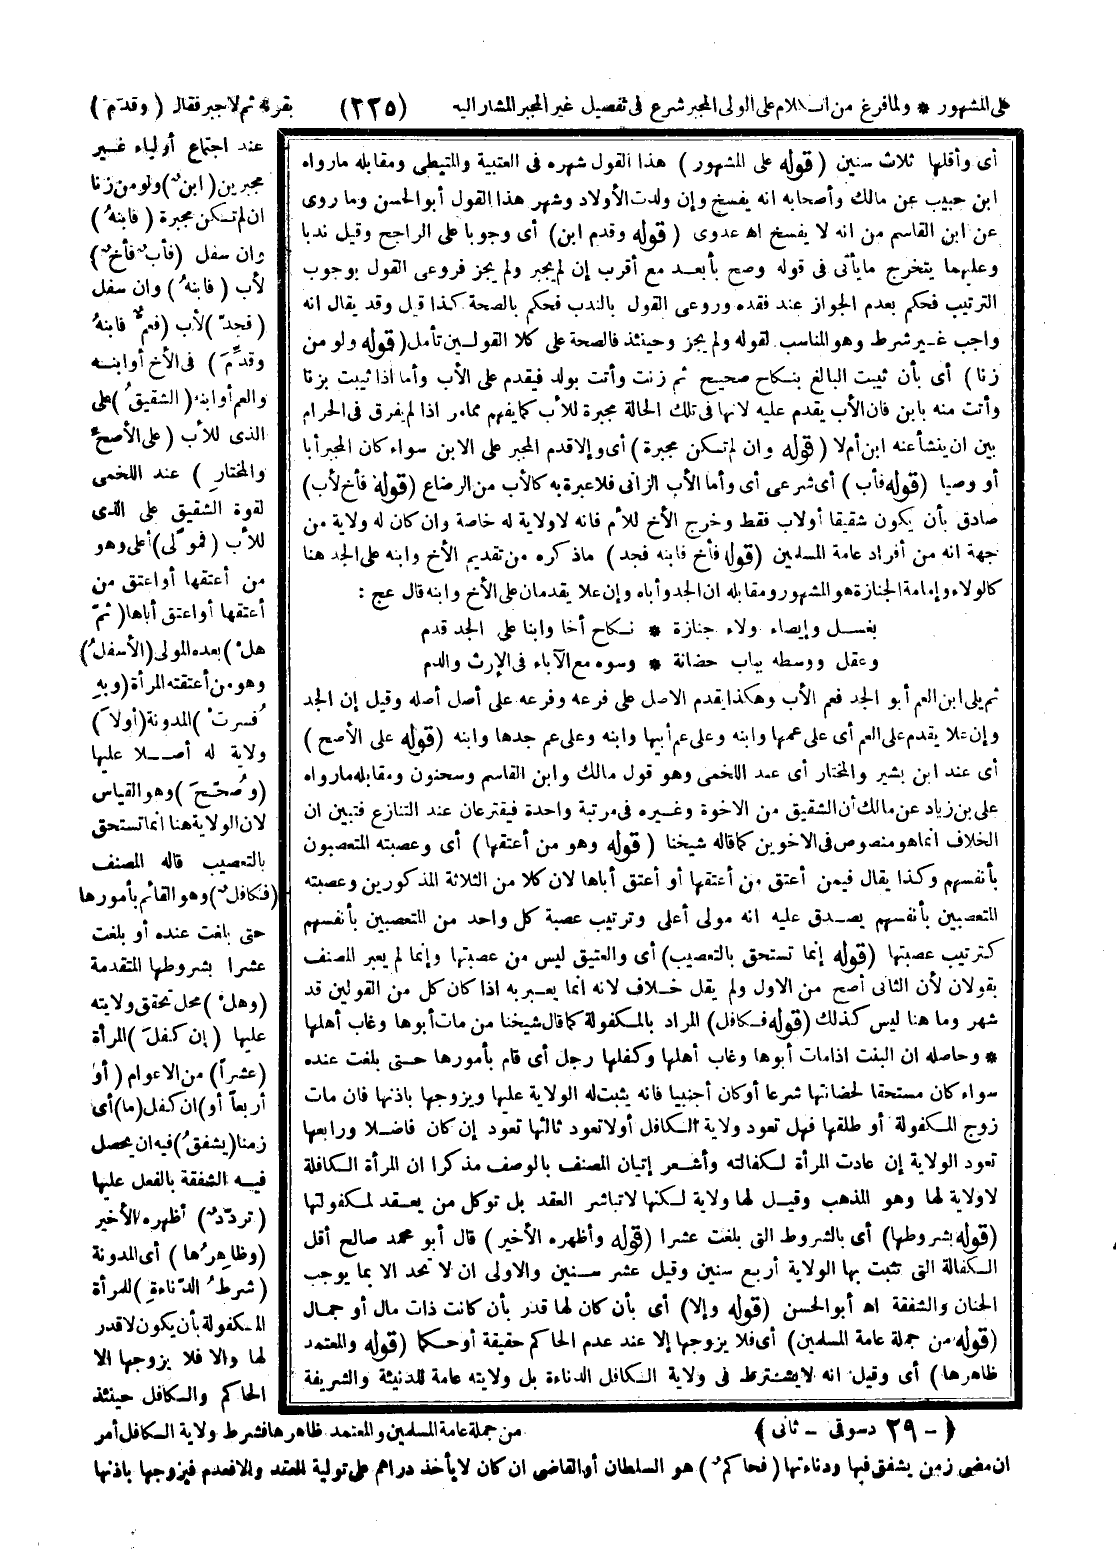 على المشهور * ولما فرغ من الكلام على الولى المجبر شرع فى تفصيل غير المجبر المشار اليه (٢٢٥) بقوله ثم لا جبر فقال (وقدّمَ)
عند اجتماع أولياء غير
مجبرين (ابنٌ) ولو من زنا
ان لم تكن مجبرة (فابنهُ)
وان سفل (فأبٌ فأخٌ)
لأب (فابنهُ) وان سفل
(فجدّ) لأب (فعمٌّ فابنهُ
وقدِّمَ) فى الأخ أو ابنه
والعم أو ابنه (الشقيقُ) على
الذى للأب (على الأصح
والمختارِ) عند اللخمى
لقوة الشقيق على الذى
للأب (فمولًى) أعلى وهو
من أعتقها أو اعتق من
أعتقها أو اعتق أباها (ثمّ
هلْ) بعده المولى (الأسفلُ)
وهو من أعتقته المرأة (وبهِ
فُسرتْ) المدونة (أولاَ)
ولاية له أصلا عليها
(وصُحّحَ) وهو القياس
لان الولاية هنا انما تستحق
بالتعصيب قاله المصنف
(فكافلٌ) وهو القائم بأمورها
حتى بلغت عنده أو بلغت
عشرا بشروطها المتقدمة
(وهلْ) محل تحقق ولايته
عليها (إن كفلَ) المرأة
(عشراً) من الاعوام (أو
أربعاً أو) ان كفل (ما) أى
زمنا (يشفقُ) فيه ان يحصل
فيه الشفقة بالفعل عليها
(تردّدٌ) أظهره الأخير
(وظاهرُها) أى المدونة
(شرطُ الدّناءةِ) للمرأة
المكفولة بأن يكون لا قدر
لها والا فلا يزوجها الا
الحاكم والكافل حينئذ
من جملة عامة المسلمين والمعتمد ظاهرها فشرط ولاية الكافل أمر
ان مضى زمن يشفق فيها ودناءتها (فحاكمٌ) هو السلطان أو القاضى ان كان لا يأخذ دراهم على تولية العقد والا فعدم فيزوجها باذنها
أى وأقلها ثلاث سنين (قوله على المشهور) هذا القول شهره فى العتبية والمتيطى ومقابله ما رواه
ابن حبيب عن مالك وأصحابه انه يفسخ وإن ولدت الأولاد وشهر هذا القول أبو الحسن وما روى
عن ابن القاسم من انه لا يفسخ اه عدوى (قوله وقدم ابن) أى وجوبا على الراجح وقيل ندبا
وعليهما يتخرج ما يأتى فى قوله وصح بأبعد مع أقرب إن لم يجبر ولم يجز فروعى القول بوجوب
الترتيب فحكم بعدم الجواز عند فقده وروعى القول بالندب فحكم بالصحة كذا قيل وقد يقال انه
واجب غير شرط وهو المناسب لقوله ولم يجز وحينئذ فالصحة على كلا القولين تأمل (قوله ولو من
زنا) أى بأن ثيبت البالغ بنكاح صحيح ثم زنت وأتت بولد فيقدم على الأب وأما اذا ثيبت بزنا
وأتت منه بابن فان الأب يقدم عليه لانها فى تلك الحالة مجبرة للأب كما يفهم مما مر اذا لم يفرق فى الحرام
بين ان ينشأ عنه ابن أم لا (قوله وان لم تكن مجبرة) أى وإلا قدم المجبر على الابن سواء كان المجبر أبا
أو وصيا (قوله فأب) أى شرعى أى وأما الأب الزانى فلا عبرة به كالأب من الرضاع (قوله فأخ لأب)
صادق بأن يكون شقيقا أو لاب فقط وخرج الأخ للأم فانه لا ولاية له خاصة وان كان له ولاية من
جهة انه من أفراد عامة المسلمين (قوله فأخ فابنه فجد) ماذكره من تقديم الأخ وابنه على الجد هنا
كالولاء وإمامة الجنازة هو المشهور ومقابله ان الجد وأباه وإن علا يقدمان على الأخ وابنه قال عج :
بغسل وإيصاء ولاء جنازة * نكاح أخا وابنا على الجد قدم
وعقل ووسطه بباب حضانة * وسوه مع الآباء فى الإرث والدم
ثم يلى ابن العم أبو الجد فعم الأب وهكذا يقدم الاصل على فرعه وفرعه على أصل أصله وقيل إن الجد
وإن علا يقدم على العم أى على عمها وابنه وعلى عم أبيها وابنه وعلى عم جدها وابنه (قوله على الأصح)
أى عند ابن بشير والمختار أى عند اللخمى وهو قول مالك وابن القاسم وسحنون ومقابله ما رواه
على بن زياد عن مالك أن الشقيق من الاخوة وغيره فى مرتبة واحدة فيقترعان عند التنازع فتبين ان
الخلاف انما هو منصوص فى الاخوين كما قاله شيخنا (قوله وهو من أعتقها) أى وعصبته المتعصبون
بأنفسهم وكذا يقال فيمن أعتق من أعتقها أو أعتق أباها لان كلا من الثلاثة المذكورين وعصبته
المتعصبين بأنفسهم يصدق عليه انه مولى أعلى وترتيب عصبة كل واحد من المتعصبين بأنفسهم
كترتيب عصبتها (قوله إنما تستحق بالتعصيب) أى والعتيق ليس من عصبتها وإنما لم يعبر المصنف
بقولان لأن الثانى أصح من الاول ولم يقل خلاف لانه انما يعبر به اذا كان كل من القولين قد
شهر وما هنا ليس كذلك (قوله فكافل) المراد بالمكفولة كما قال شيخنا من مات أبوها وغاب أهلها
* وحاصله ان البنت اذا مات أبوها وغاب أهلها وكفلها رجل أى قام بأمورها حتى بلغت عنده
سواء كان مستحقا لحضانتها شرعا أو كان أجنبيا فانه يثبت له الولاية عليها ويزوجها باذنها فان مات
زوج المكفولة أو طلقها فهل تعود ولاية الكافل أو لا تعود ثالثها تعود إن كان فاضلا ورابعها
تعود الولاية إن عادت المرأة لكفالته وأشعر إتيان المصنف بالوصف مذكرا ان المرأة الكافلة
لا ولاية لها وهو المذهب وقيل لها ولاية لكنها لا تباشر العقد بل توكل من يعقد لمكفولتها
(قوله بشروطها) أى بالشروط التى بلغت عشرا (قوله وأظهره الأخير) قال أبو محمد صالح أقل
الكفالة التى تثبت بها الولاية أربع سنين وقيل عشر سنين والاولى ان لا تحد الا بما يوجب
الحنان والشفقة اه أبو الحسن (قوله وإلا) أى بأن كان لها قدر بأن كانت ذات مال أو جمال
(قوله من جملة عامة المسلمين) أى فلا يزوجها إلا عند عدم الحاكم حقيقة أو حكما (قوله والمعتمد
ظاهرها) أى وقيل انه لا يشترط فى ولاية الكافل الدناءة بل ولايته عامة للدنيئة والشريفة
(- ٢٩ دسوقى - ثانى)